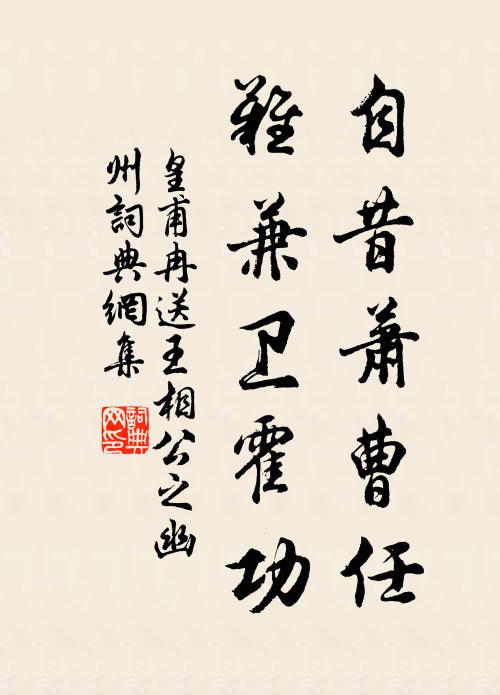 自昔萧曹任
難兼卫霍功
皇甫冉送王相公之幽
州詞典網集
詞典
网印